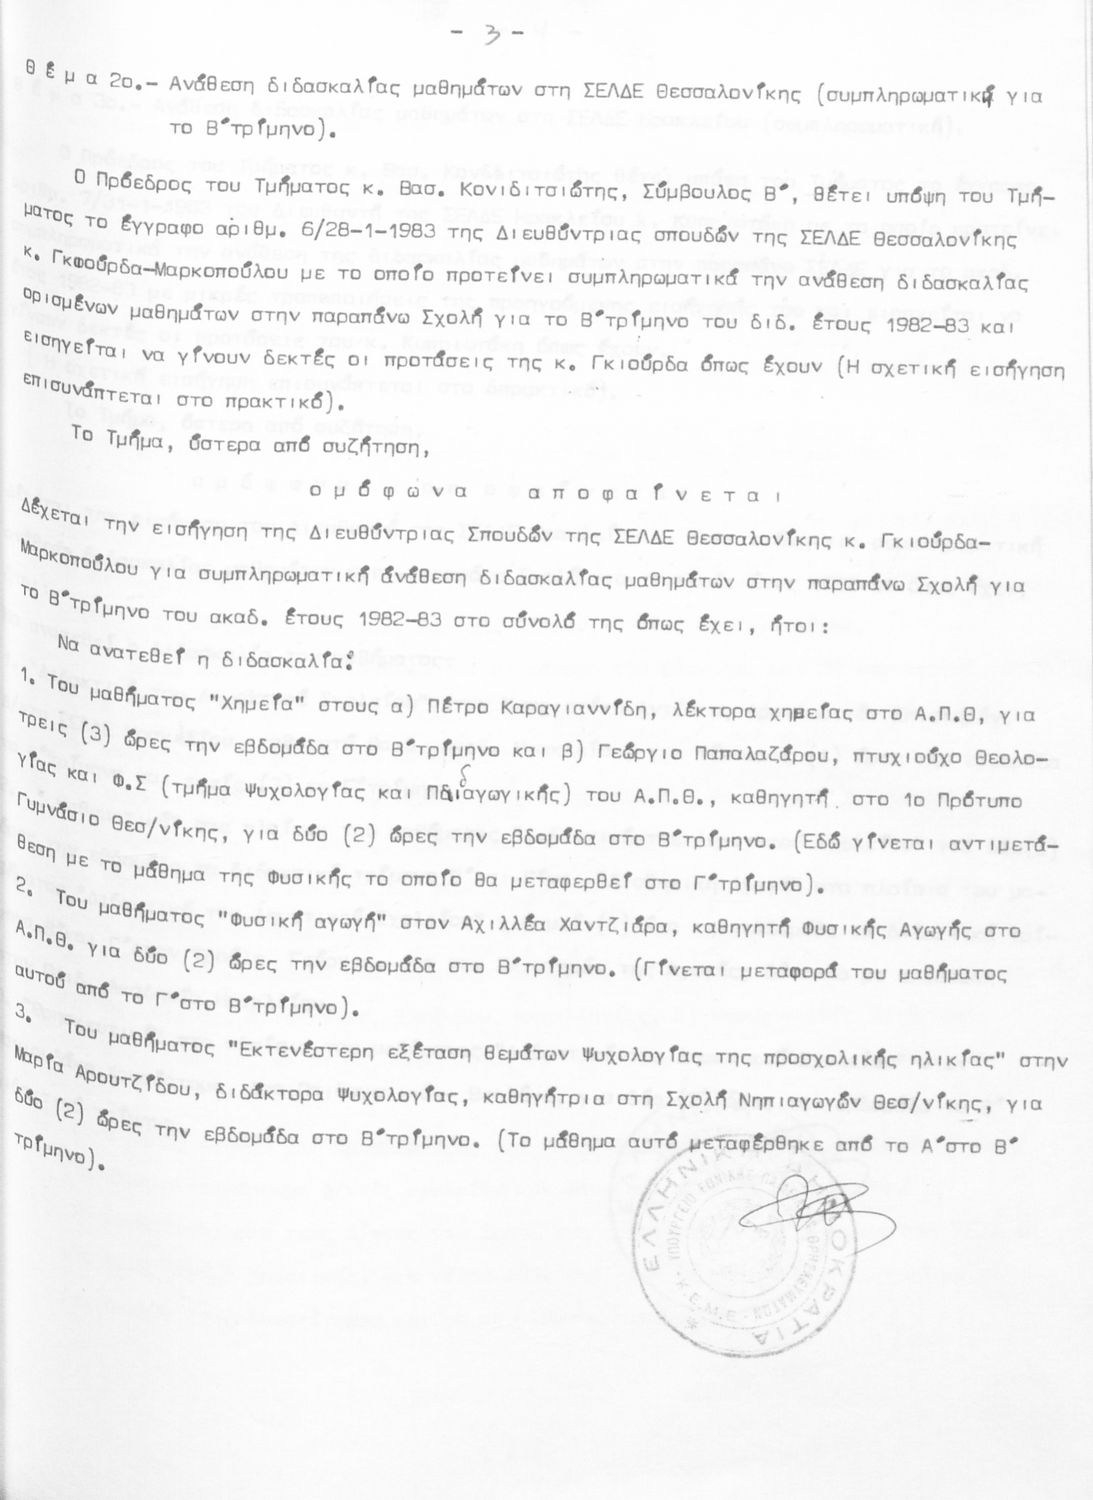 - 3 -
Θ έ μ α 2ο.- Ανάθεση διδασκαλίας μαθημάτων στη ΣΕΛΔΕ Θεσσαλονίκης (συμπληρωματική για
το Β΄τρίμηνο).
Ο Πρόεδρος του Τμήματος κ. Βασ. Κονιδιτσιώτης, Σύμβουλος Β΄, θέτει υπόψη του Τμή-
ματος το έγγραφο αριθμ. 6/28-1-1983 της Διευθύντριας σπουδών της ΣΕΛΔΕ Θεσσαλονίκης
κ. Γκφούρδα-Μαρκοπούλου με το οποίο προτείνει συμπληρωματικά την ανάθεση διδασκαλίας
ορισμένων μαθημάτων στην παραπάνω Σχολή για το Β΄τρίμηνο του διδ. έτους 1982-83 και
εισηγείται να γίνουν δεκτές οι προτάσεις της κ. Γκιούρδα όπως έχουν (Η σχετική εισήγηση
επισυνάπτεται στο πρακτικό).
Το Τμήμα, ύστερα από συζήτηση,
ο μ ό φ ω ν α   α π ο φ α ί ν ε τ α ι
Δέχεται την εισήγηση της Διευθύντριας Σπουδών της ΣΕΛΔΕ Θεσσαλονίκης κ. Γκιούρδα-
Μαρκοπούλου για συμπληρωματική ανάθεση διδασκαλίας μαθημάτων στην παραπάνω Σχολή για
το Β΄τρίμηνο του ακαδ. έτους 1982-83 στο σύνολό της όπως έχει, ήτοι:
Να ανατεθεί η διδασκαλία:
1. Του μαθήματος "Χημεία" στους α) Πέτρο Καραγιαννίδη, λέκτορα χημείας στο Α.Π.Θ, για
τρεις (3) ώρες την εβδομάδα στο Β΄τρίμηνο και β) Γεώργιο Παπαλαζάρου, πτυχιούχο Θεολο-
γίας και Φ.Σ (τμήμα Ψυχολογίας και Παιδαγωγικής) του Α.Π.Θ., καθηγητή στο 1ο Πρότυπο
Γυμνάσιο Θεσ/νίκης, για δύο (2) ώρες την εβδομάδα στο Β΄τρίμηνο. (Εδώ γίνεται αντιμετά-
θεση με το μάθημα της Φυσικής το οποίο θα μεταφερθεί στο Γ΄τρίμηνο).
2. Του μαθήματος "Φυσική αγωγή" στον Αχιλλέα Χαντζιάρα, καθηγητή Φυσικής Αγωγής στο
Α.Π.Θ. για δύο (2) ώρες την εβδομάδα στο Β΄τρίμηνο. (Γίνεται μεταφορά του μαθήματος
αυτού από το Γ΄στο Β΄τρίμηνο).
3. Του μαθήματος "Εκτενέστερη εξέταση θεμάτων Ψυχολογίας της προσχολικής ηλικίας" στην
Μαρία Αρουτζίδου, διδάκτορα Ψυχολογίας, καθηγήτρια στη Σχολή Νηπιαγωγών Θεσ/νίκης, για
δύο (2) ώρες την εβδομάδα στο Β΄τρίμηνο. (Το μάθημα αυτό μεταφέρθηκε από το Α΄στο Β΄
τρίμηνο).
ΕΛΛΗΝΙΚΗ ΔΗΜΟΚΡΑΤΙΑ
ΥΠΟΥΡΓΕΙΟ ΕΘΝΙΚΗΣ ΠΑΙΔΕΙΑΣ ΘΡΗΣΚΕΥΜΑΤΩΝ
Κ.Ε.Μ.Ε